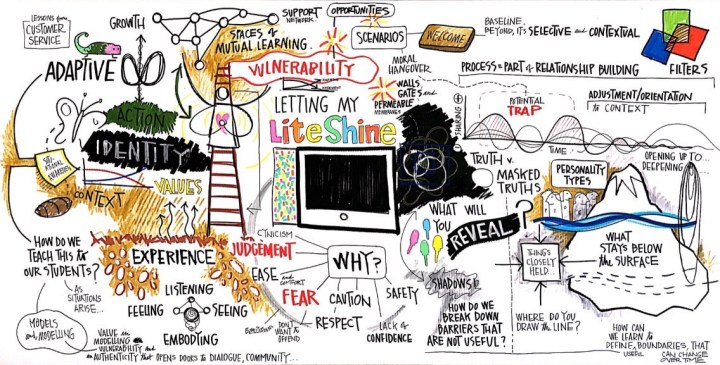 LESSONS from
CUSTOMER
SERVICE
GROWTH
ADAPTIVE
ACTION
IDENTITY
CONTEXT
VALUES
SPACES of
MUTUAL LEARNING.
SUPPORT
NETWORK.
OPPORTUNITIES
SCENARIOS
WELCOME
MORAL
HANGOVER
VULNERABILITY
LETTING MY
LiteShine
WALLS,
GATES and
PERMEABLE
MEMBRANES
BASELINE.
BEYOND, IT'S SELECTIVE and CONTEXTUAL
PROCESS = PART of RELATIONSHIP BUILDING
FILTERS
ADJUSTMENT/ORIENTATION
to CONTEXT
SHARING
POTENTIAL
TRAP
TIME
OPENING UP TO
DEEPENING
TRUTH v.
MASKED
TRUTHS
?
PERSONALITY
TYPES
WHAT WILL
YOU
REVEAL
WHAT
STAYS BELOW
the SURFACE
THING'S
CLOSELY
HELD...
WHERE DO YOU
DRAW the LINE?
HOW CAN
WE LEARN to
DEFINE USEFUL BOUNDARIES, THAT
CAN CHANGE
OVER TIME
SHADOWS
HOW DO WE
BREAK DOWN
BARRIERS THAT
ARE NOT USEFUL?
CYNICISM
JUDGEMENT
EASE and
COMFORT
FEAR
WHY?
CAUTION
SAFETY
DON'T
WANT TO
OFFEND
RESPECT
LACK of
CONFIDENCE
EXPERIENCE
LISTENING
FEELING
SEEING
EMBODYING
HOW DO WE
TEACH THIS to
OUR STUDENTS?
AS
SITUATIONS
ARISE...
MODELS
and MODELLING
VALUE in
MODELLING
VULNERABILITY and
AUTHENTICITY that OPENS DOORS to DIALOGUE, COMMUNITY...